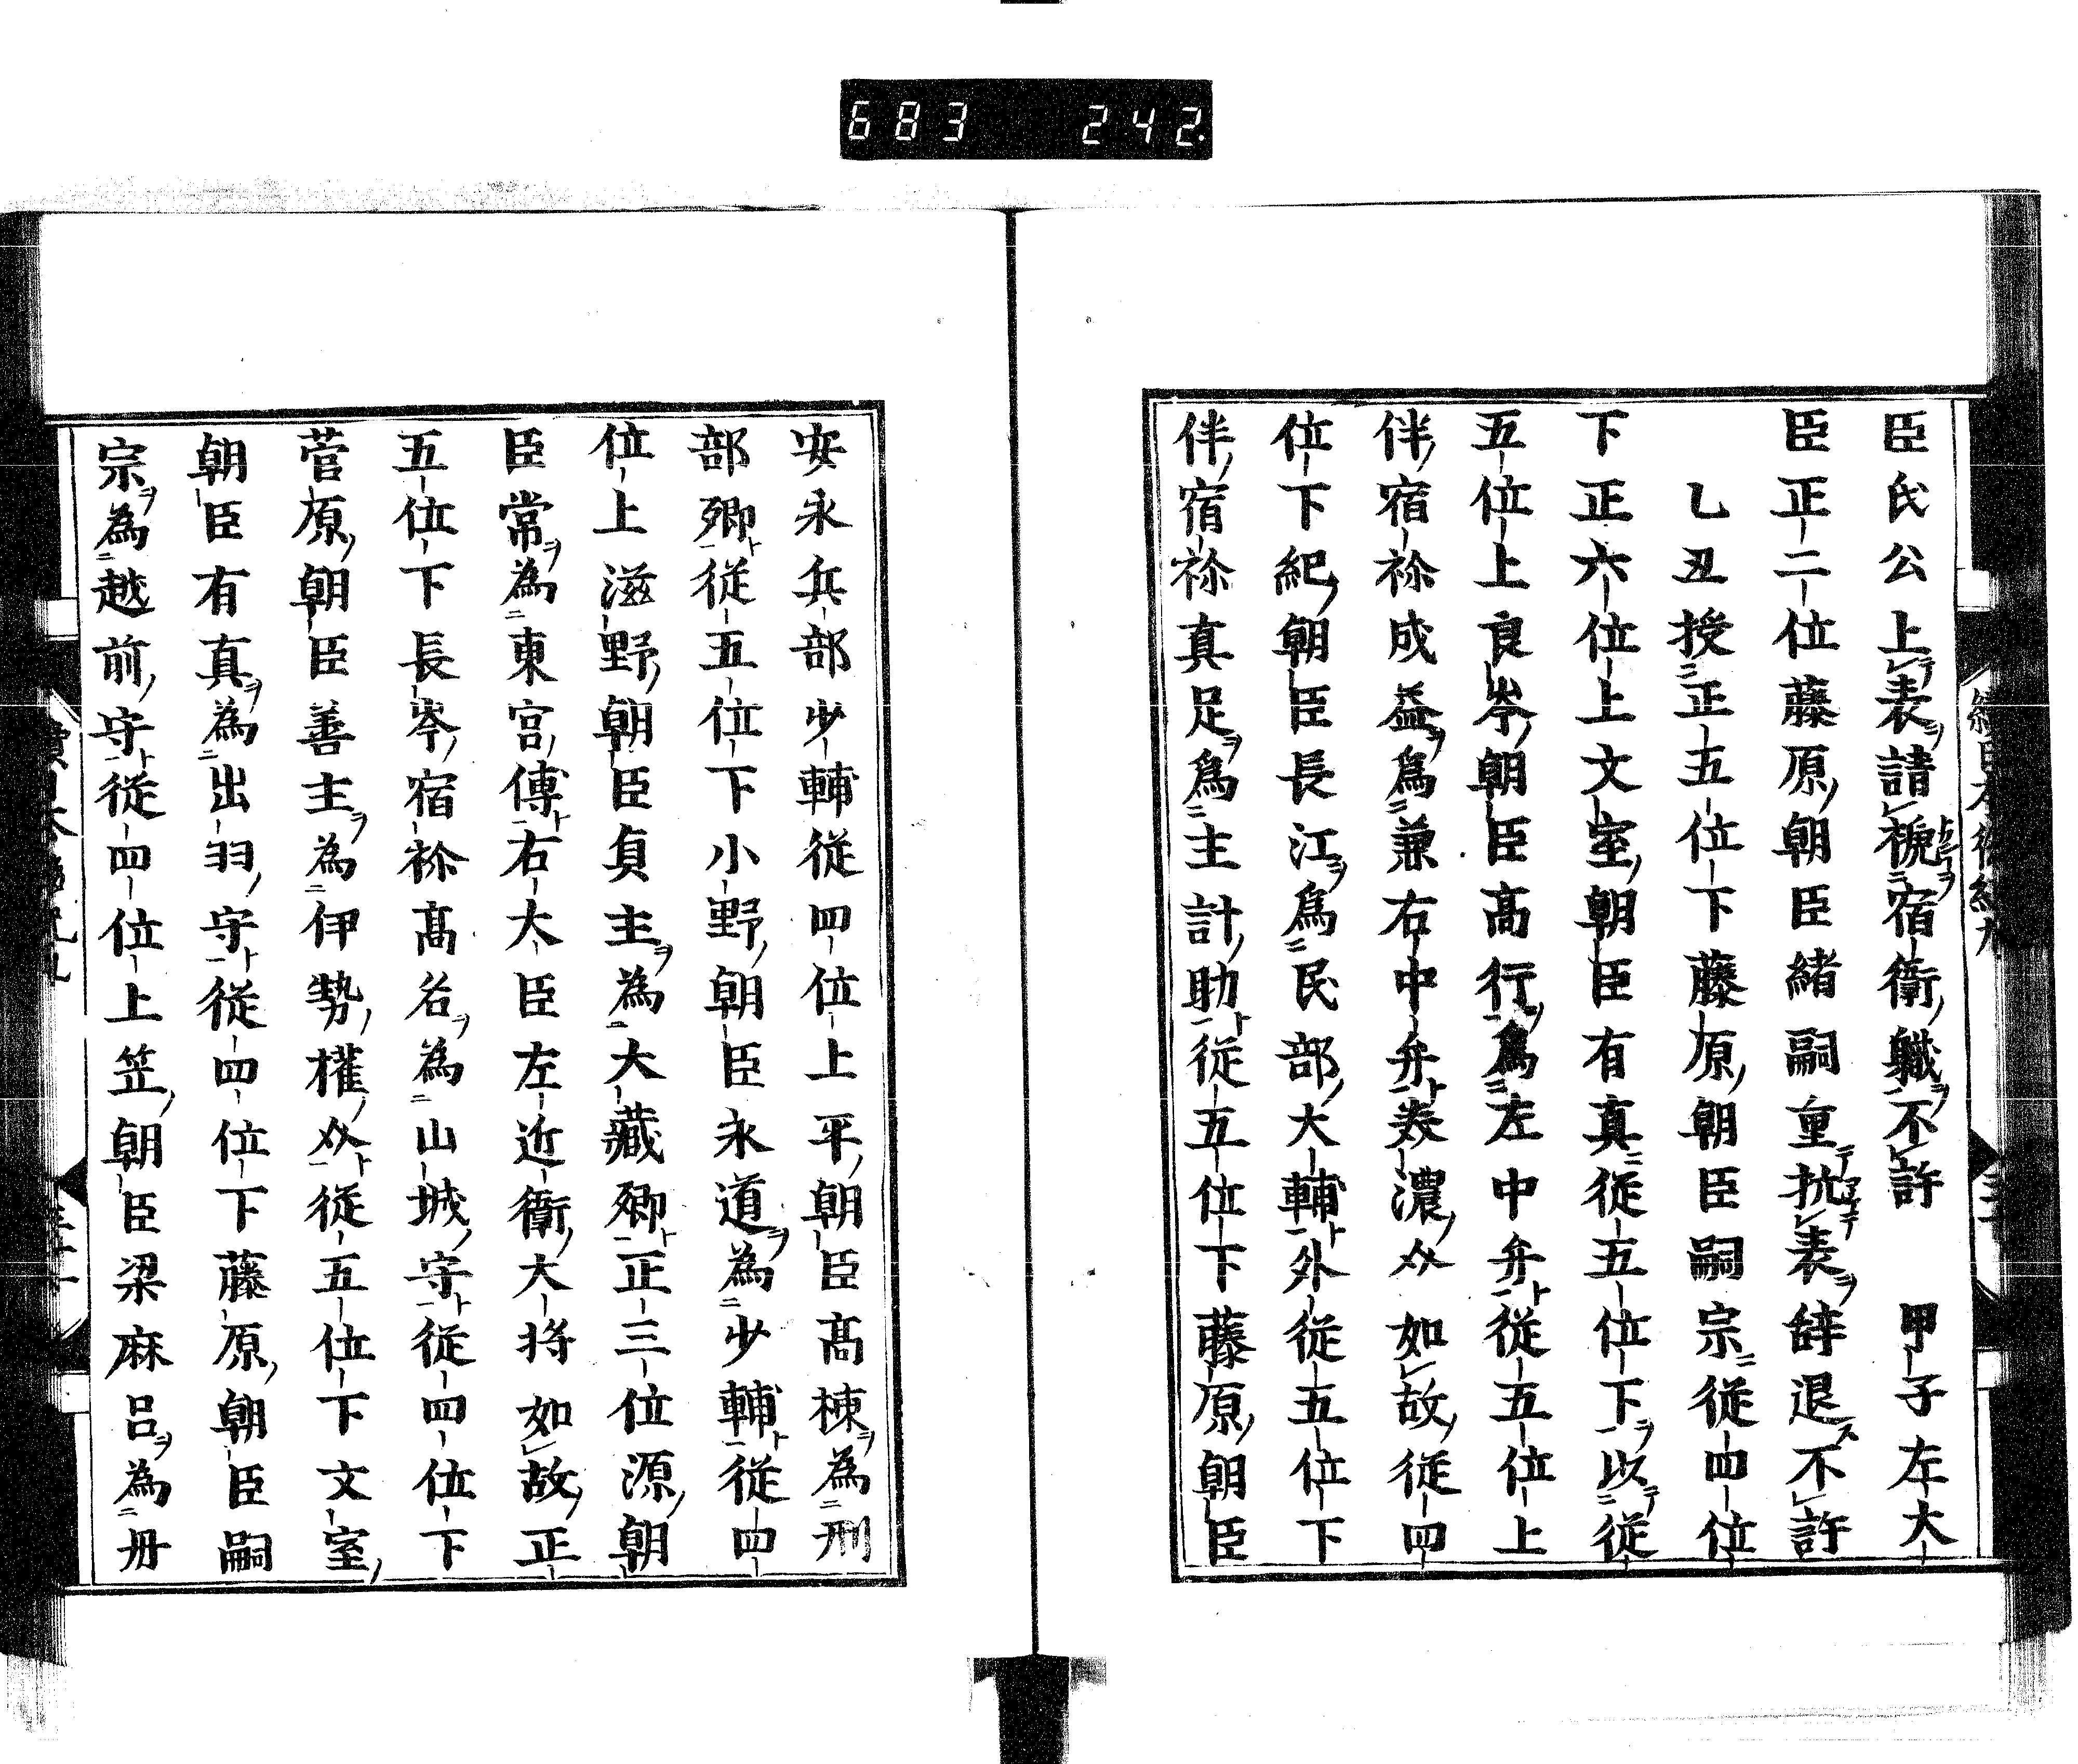 683 242
臣氏公上表請褫宿衛軄不許 甲子左大
臣正二位藤原朝臣緒嗣重抗表辞退不許
乙丑授正五位下藤原朝臣嗣宗従四位
下正六位上文室朝臣有真従五位下以従
五位上良岑朝臣高行為左中弁従五位上
伴宿祢成益爲兼右中弁美濃介如故従四
位下紀朝臣長江爲民部大輔外従五位下
伴宿祢真足爲主計助従五位下藤原朝臣
安永兵部少輔従四位上平朝臣高棟為刑
部卿従五位下小野朝臣永道為少輔従四
位上滋野朝臣貞主為大藏卿正三位源朝
臣常為東宮傅右大臣左近衛大将如故正
五位下長岑宿祢高名為山城守従四位下
菅原朝臣善主為伊勢權介従五位下文室
朝臣有真為出羽守従四位下藤原朝臣嗣
宗為越前守従四位上笠朝臣梁麻呂為丹